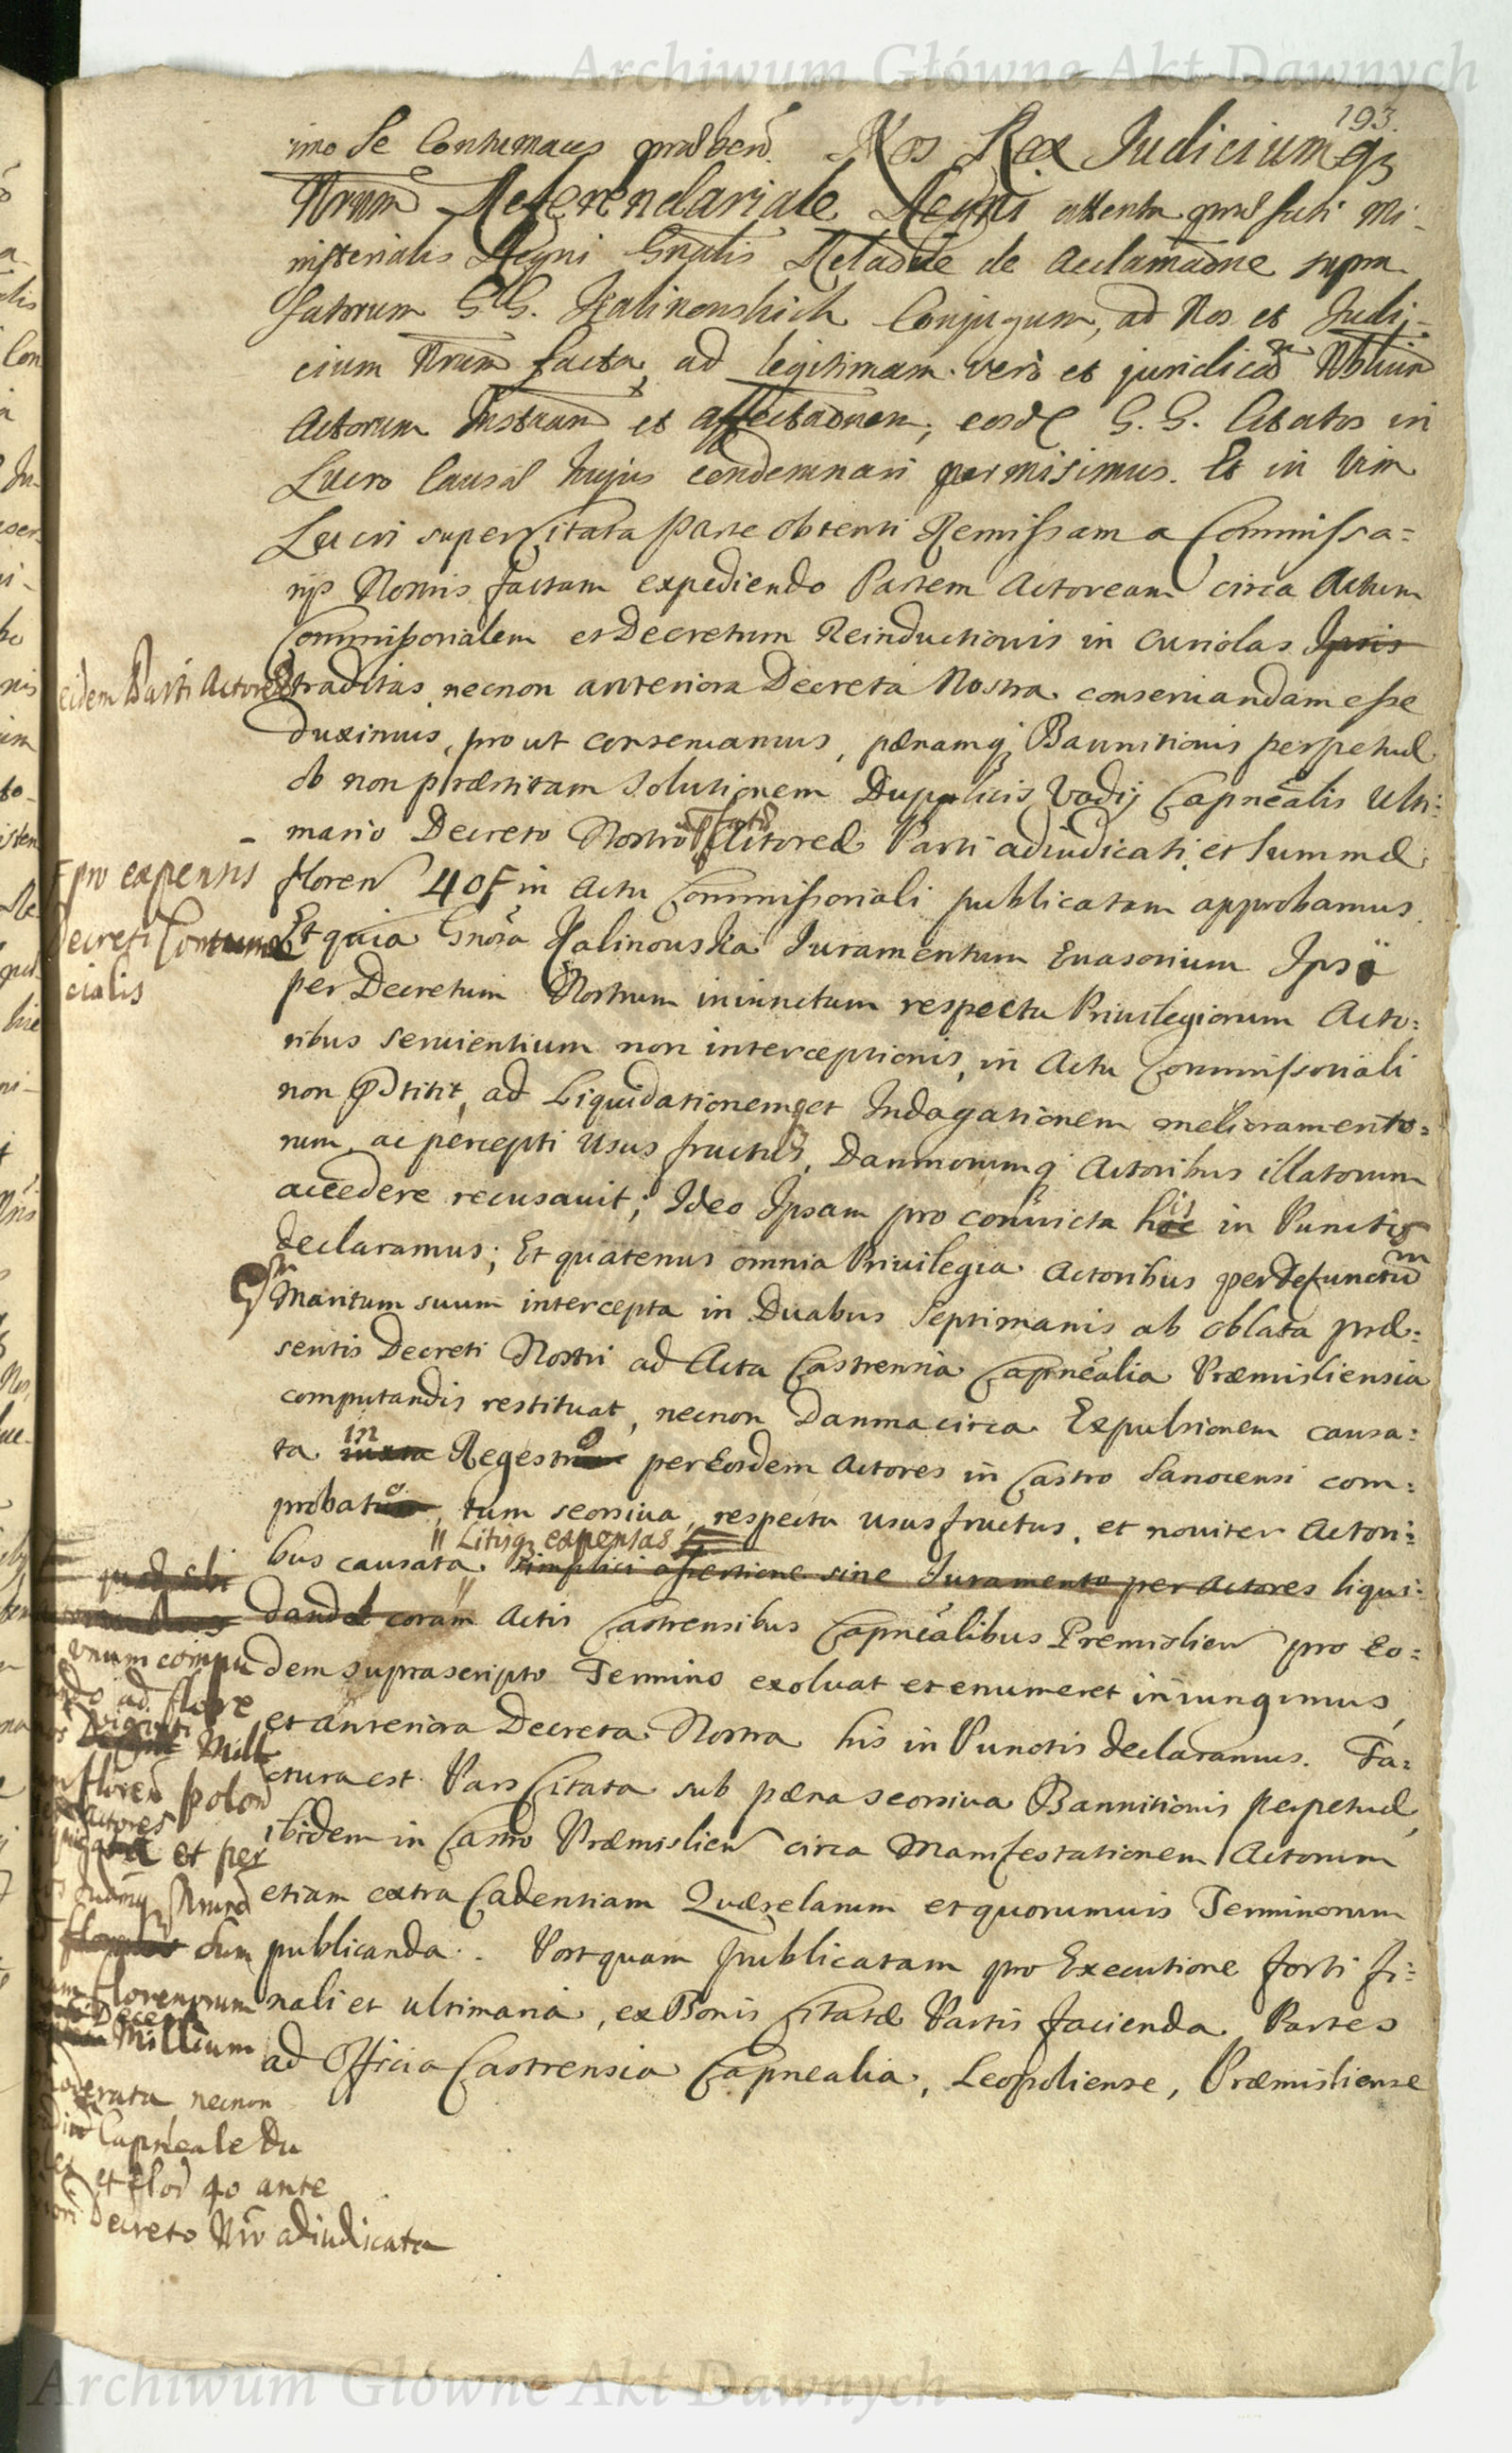 Archiwum Główne Akt Dawnych
193.
imo se Contumaces praebeñ. Nos Rex Judiciumq3
Nrum Referendariale Regni attenta praefati Mi-
nisterialis Regni Gnalis Relaõne de acclamaõne supra
fatorum G G. Kalinowskich Conjugum, ad Nos et Judi-
cium Nrum facta, ad legitimam vero et juridicam Nbilium
Actorum Instaam et affectaõnem, eosd G. G. Citatos in
Lucro Causae hujus condemnari permisimus. Et in vim
Lucri super Citata Parte obtenti Remissam a Commissa=
rijs Nostris factam expediendo Partem Actoream circa Actum
Commissorialem et Decretum Reinductionis in curiolas Ipsis
eidem Parti Actoreae traditas necnon anteriora Decreta Nostra conservandam esse
duximus, prout conservamus, paenamq Bannitionis perpetuae
ob non praestitam solutionem Duplicis Vadij Capnealis Ulti=
mario Decreto Nostro Actoreae Parti adiudicati, et Summae
floren 40 in Actu Commissoriali publicatam approbamus.
pro expensis
Decreti Contuma
cialis
Et quia Gnosa Kalinouska Iuramentum Evasorium Ipsi
per Decretum Nostrum iniunctum respectu Priuilegiorum Acto=
ribus seruientium non interceptionis, in Actu Commissoriali
non pstitit, ad Liquidationemq et Indagationem melioramento=
rum, ac percepti Usus fructus, Damnorumq Actoribus illatorum
accedere recusauit; Ideo Ipsam pro conuicta his in Punctis
declaramus; Et quatenus omnia Priuilegia Actoribus per Defunctum
Maritum suum intercepta in Duabus Septimanis ab oblata prae=
sentis Decreti Nostri ad Acta Castrensia Capnealia Praemisliensia
computandis restituat, necnon Damna circa Expulsionem causa=
ta in Regestro per Eosdem Actores in Castro Sanocensi com=
probato, tum seorsiua, respectu usus fructus, et nouiter Actori=
Litisq expensas
bus causata simplici assertione sine Iuramento per Actores liqui=
dandae coram Actis Castrensibus Capnealibus Premislien pro Eo=
dem suprascripto Termino exoluat et enumeret iniungimus,
et anteriora Decreta Nostra his in Punctis declaramus. Fa=
ctura est Pars Citata sub paena seorsiua Bannitionis perpetuae,
ibidem in Castro Praemislien circa Manifestationem Actorum
etiam extra Cadentiam Quaerelarum et quorumuis Terminorum
publicanda. Postquam publicatam pro Executione forti fi=
nali et ultimaria, ex Bonis Citatae Partis facienda Partes
ad Officia Castrensia Capnealia, Leopoliense, Praemisliense
quod sibi
unum compu
ad flore
viginti Mille
floren polon
Actores
et per
Sum
florenorum
Decem
Millium
moderata necnon
Capneale Du
et flor 40 ante
Decreto Nro adiudicata
Archiwum Główne Akt Dawnych